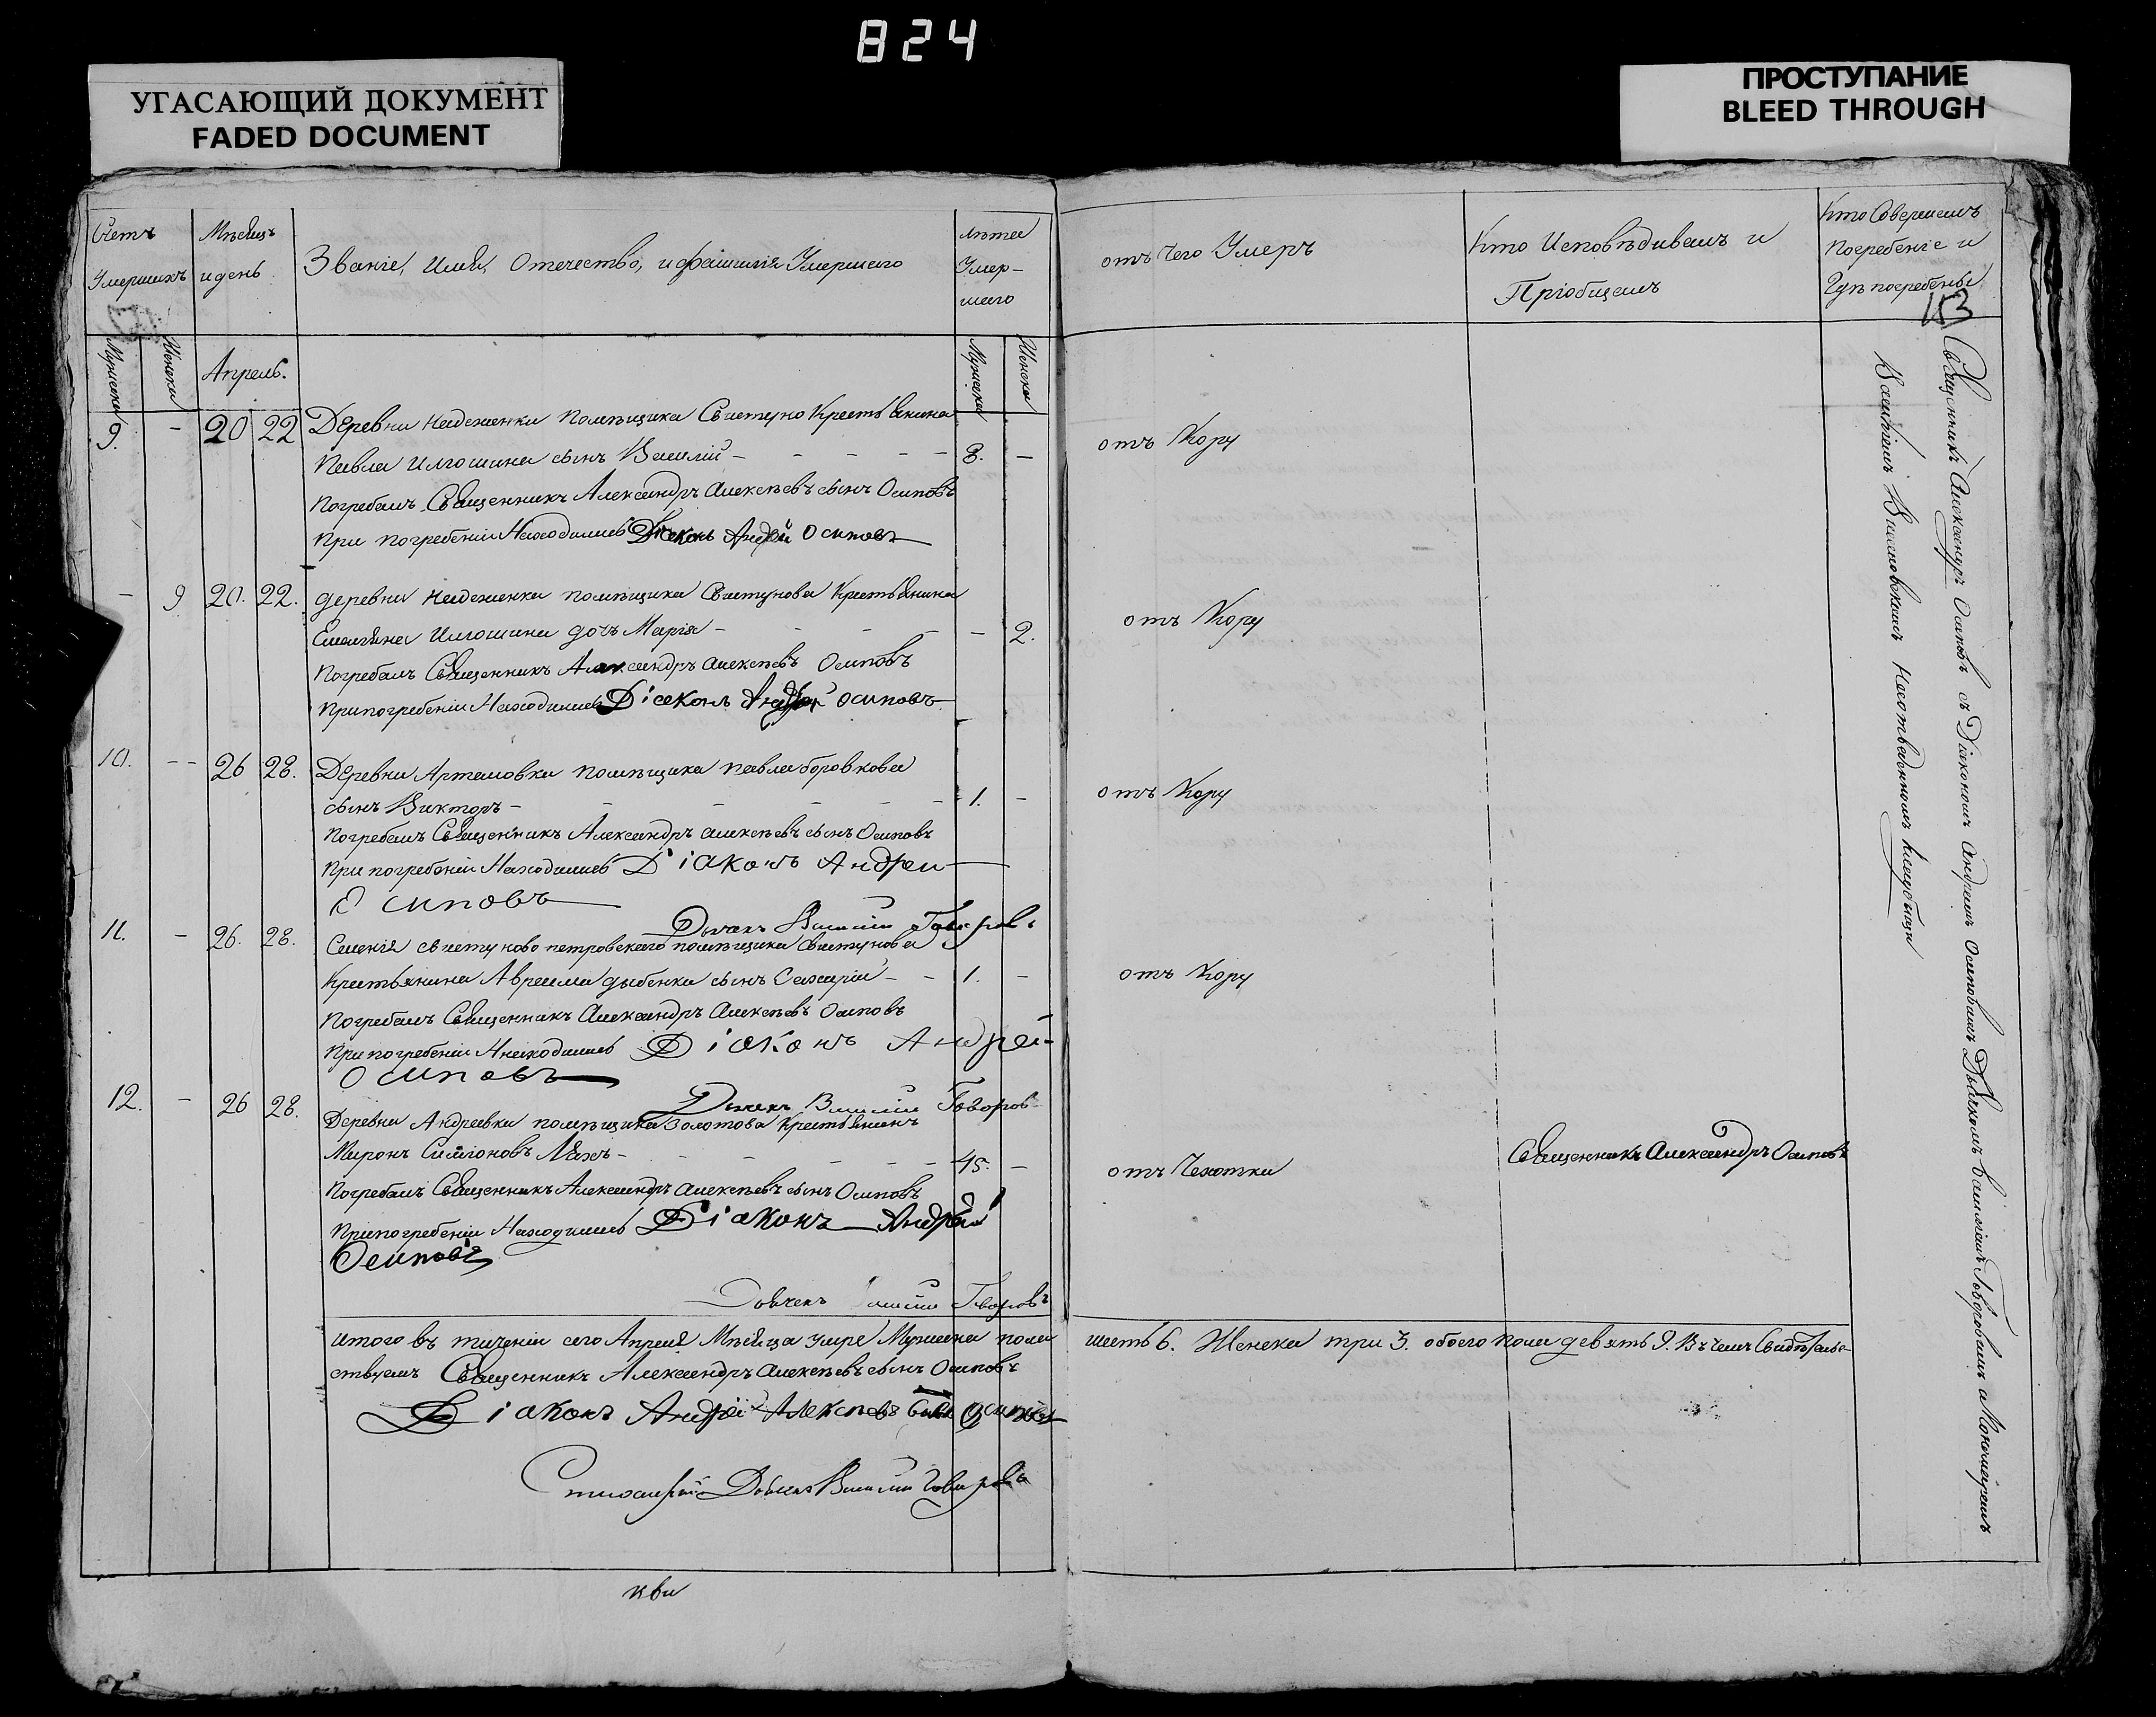 824
УГАСАЮЩИЙ ДОКУМЕНТ
FADED DOCUMENT
ПРОСТУПАНИЕ
BLEED THROUGH
Счетъ Умершихъ
Мѣсяцъ и день
Званіе, Имя, Отечество, и фамилія Умершаго
лѣта Умер-
шаго
отъ Чего Умеръ
Кто Исповѣдивалъ и
Пріобщалъ
Кто Совершалъ
Погребеніе и
Гдѣ погребены
113
Мужска Женска
Апрель.
Мужска Женска
9. - 20 22 Деревни помѣщика Свистуно Крестьянина
Павла Илюшина сынъ Василій - - - - - 8. -
отъ Кору
Погребалъ Священникъ Александръ Алексѣевъ сынъ Осиповъ
При погребеніи Находился Діаконъ Андрей Осиповъ
- 9 20. 22. деревни помѣщика Свистунова Крестьянина
Илюшина дочь Марія - - - - - 2.
отъ Кору
Погребалъ Священникъ Александръ Алексѣевъ Осиповъ
При погребеніи Находился Діаконъ Андрей Осиповъ
10. -- 26 28. Деревни Артемовки помѣщика Павла боровкова
сынъ Викторъ - - - - - 1. -
отъ Кору
Погребалъ Священникъ Александръ Алексѣевъ сынъ Осиповъ
При погребеніи Находился Діаконъ Андреи
Осиповъ
Дьячекъ Василій Говоровъ
11. - 26. 28. петровскаго помѣщика Свистунова
Крестьянина Авраама дыбенка сынъ Захарій - - 1. -
отъ Кору
Погребалъ Священникъ Александръ Алексѣевъ Осиповъ
При погребеніи Находился Діаконъ Андрей
Осиповъ
Дьячекъ Василій Говоровъ
12. - 26 28. Деревни Андреевки помѣщика Золотова Крестьянинъ
Миронъ Симіоновъ Ляхъ - - - - - 45. -
отъ Чехотки
Священникъ Александръ Осиповъ
Погребалъ Священникъ Александръ Алексѣевъ сынъ Осиповъ
При погребеніи Находился Діаконъ Андрей
Осиповъ
Дьячекъ Василій Говоровъ
итого въ тиченіи сего Апреля Мѣсяца умре Мужеска пола шесть 6. Женска три 3. обоего пола девять 9. Въ чемъ Свидѣтель-
ствуемъ Священникъ Александръ Алексѣевъ сынъ Осиповъ
Діаконъ Андрей Алексѣевъ сынъ Осиповъ
Дьячекъ Василій Говоровъ
Священникъ Александръ Осиповъ съ Діакономъ Андреемъ Осиповымъ Дьячкомъ Василіемъ Говоровымъ а Пономаремъ
Василіемъ На отведенномъ кладбищи